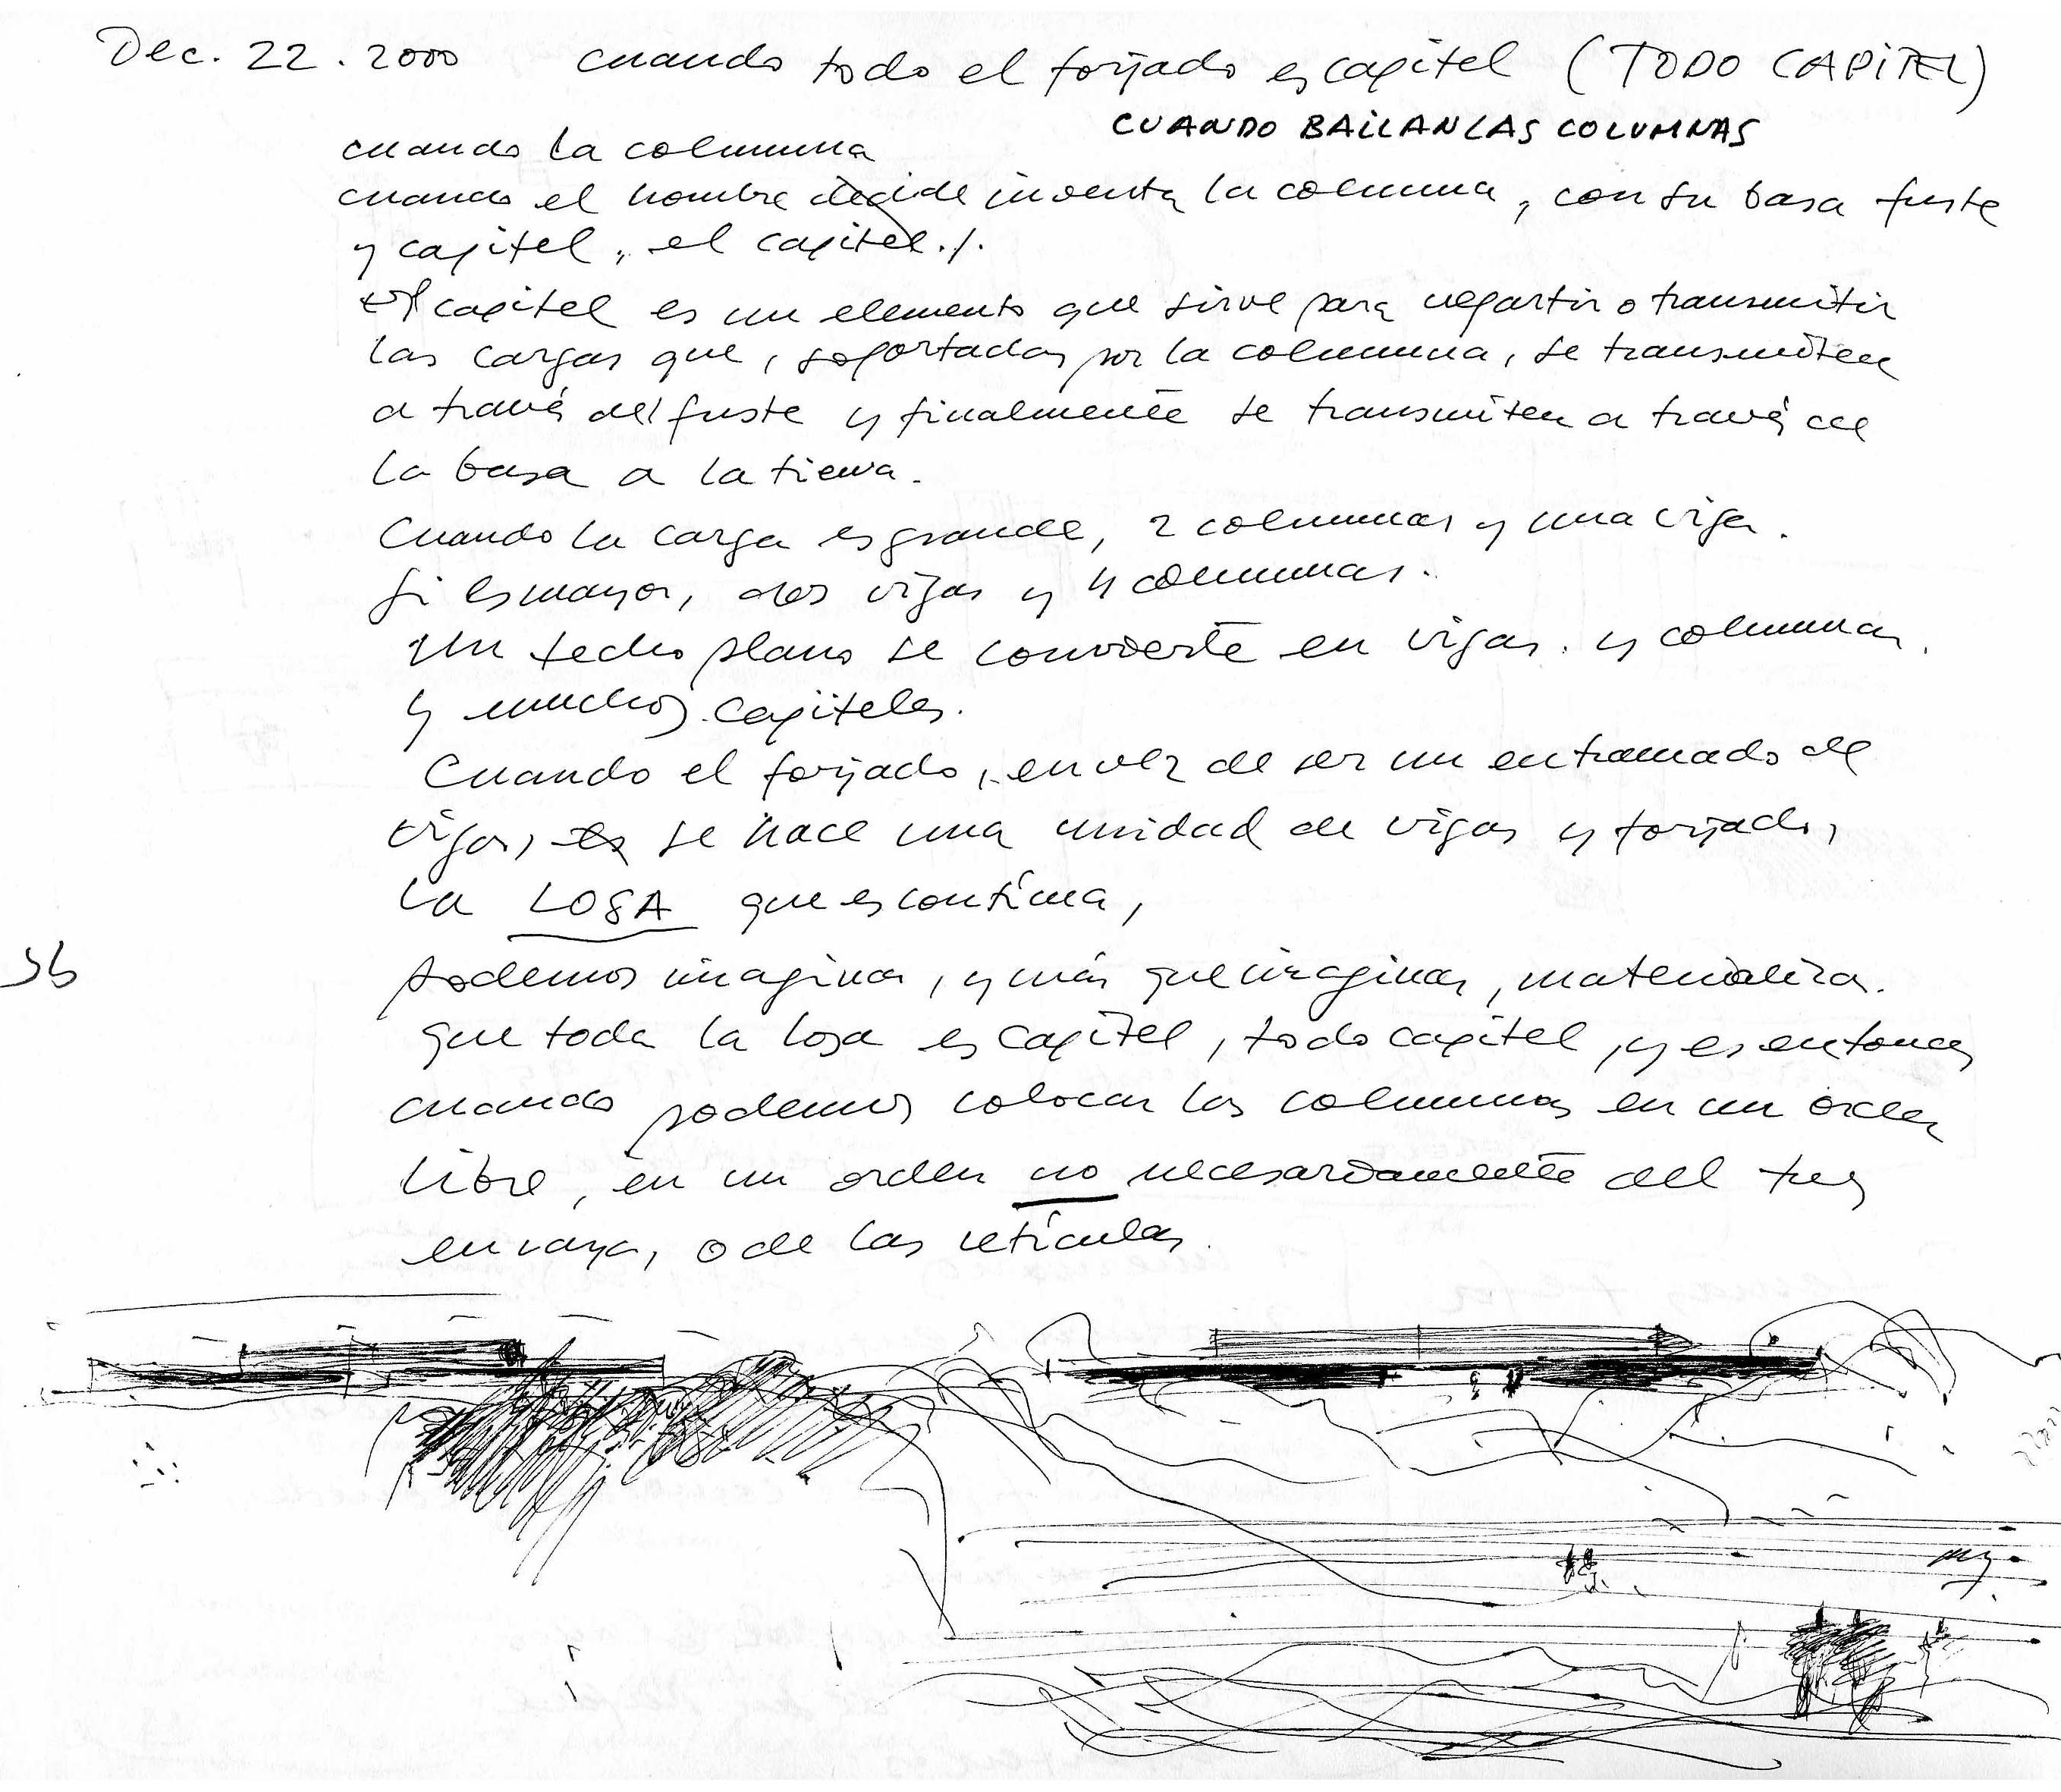 Dec. 22. 2000 cuando todo el forjado es capitel (TODO CAPITEL)
CUANDO BAILAN LAS COLUMNAS
cuando la columna
cuando el hombre decide inventa la columna, con su basa fuste
y capitel, el capitel./.
El capitel es un elemento que sirve para repartir o transmitir
las cargas que, soportadas por la columna, se transmiten
a través del fuste y finalmente se transmiten a través de
la basa a la tierra.
Cuando la carga es grande, 2 columnas y una viga.
Si es mayor, dos vigas y 4 columnas.
Un techo plano se convierte en vigas. y columnas.
y muchos capiteles.
Cuando el forjado, en vez de ser un entramado de
vigas, es se hace una unidad de vigas y forjado,
la LOSA que es contínua,
podemos imaginar, y más que imaginar, materializar.
que toda la losa es capitel, todo capitel, y es entonces
cuando podemos colocar las columnas en un orden
libre, en un orden no necesariamente del tres
en raya, o de las retículas.